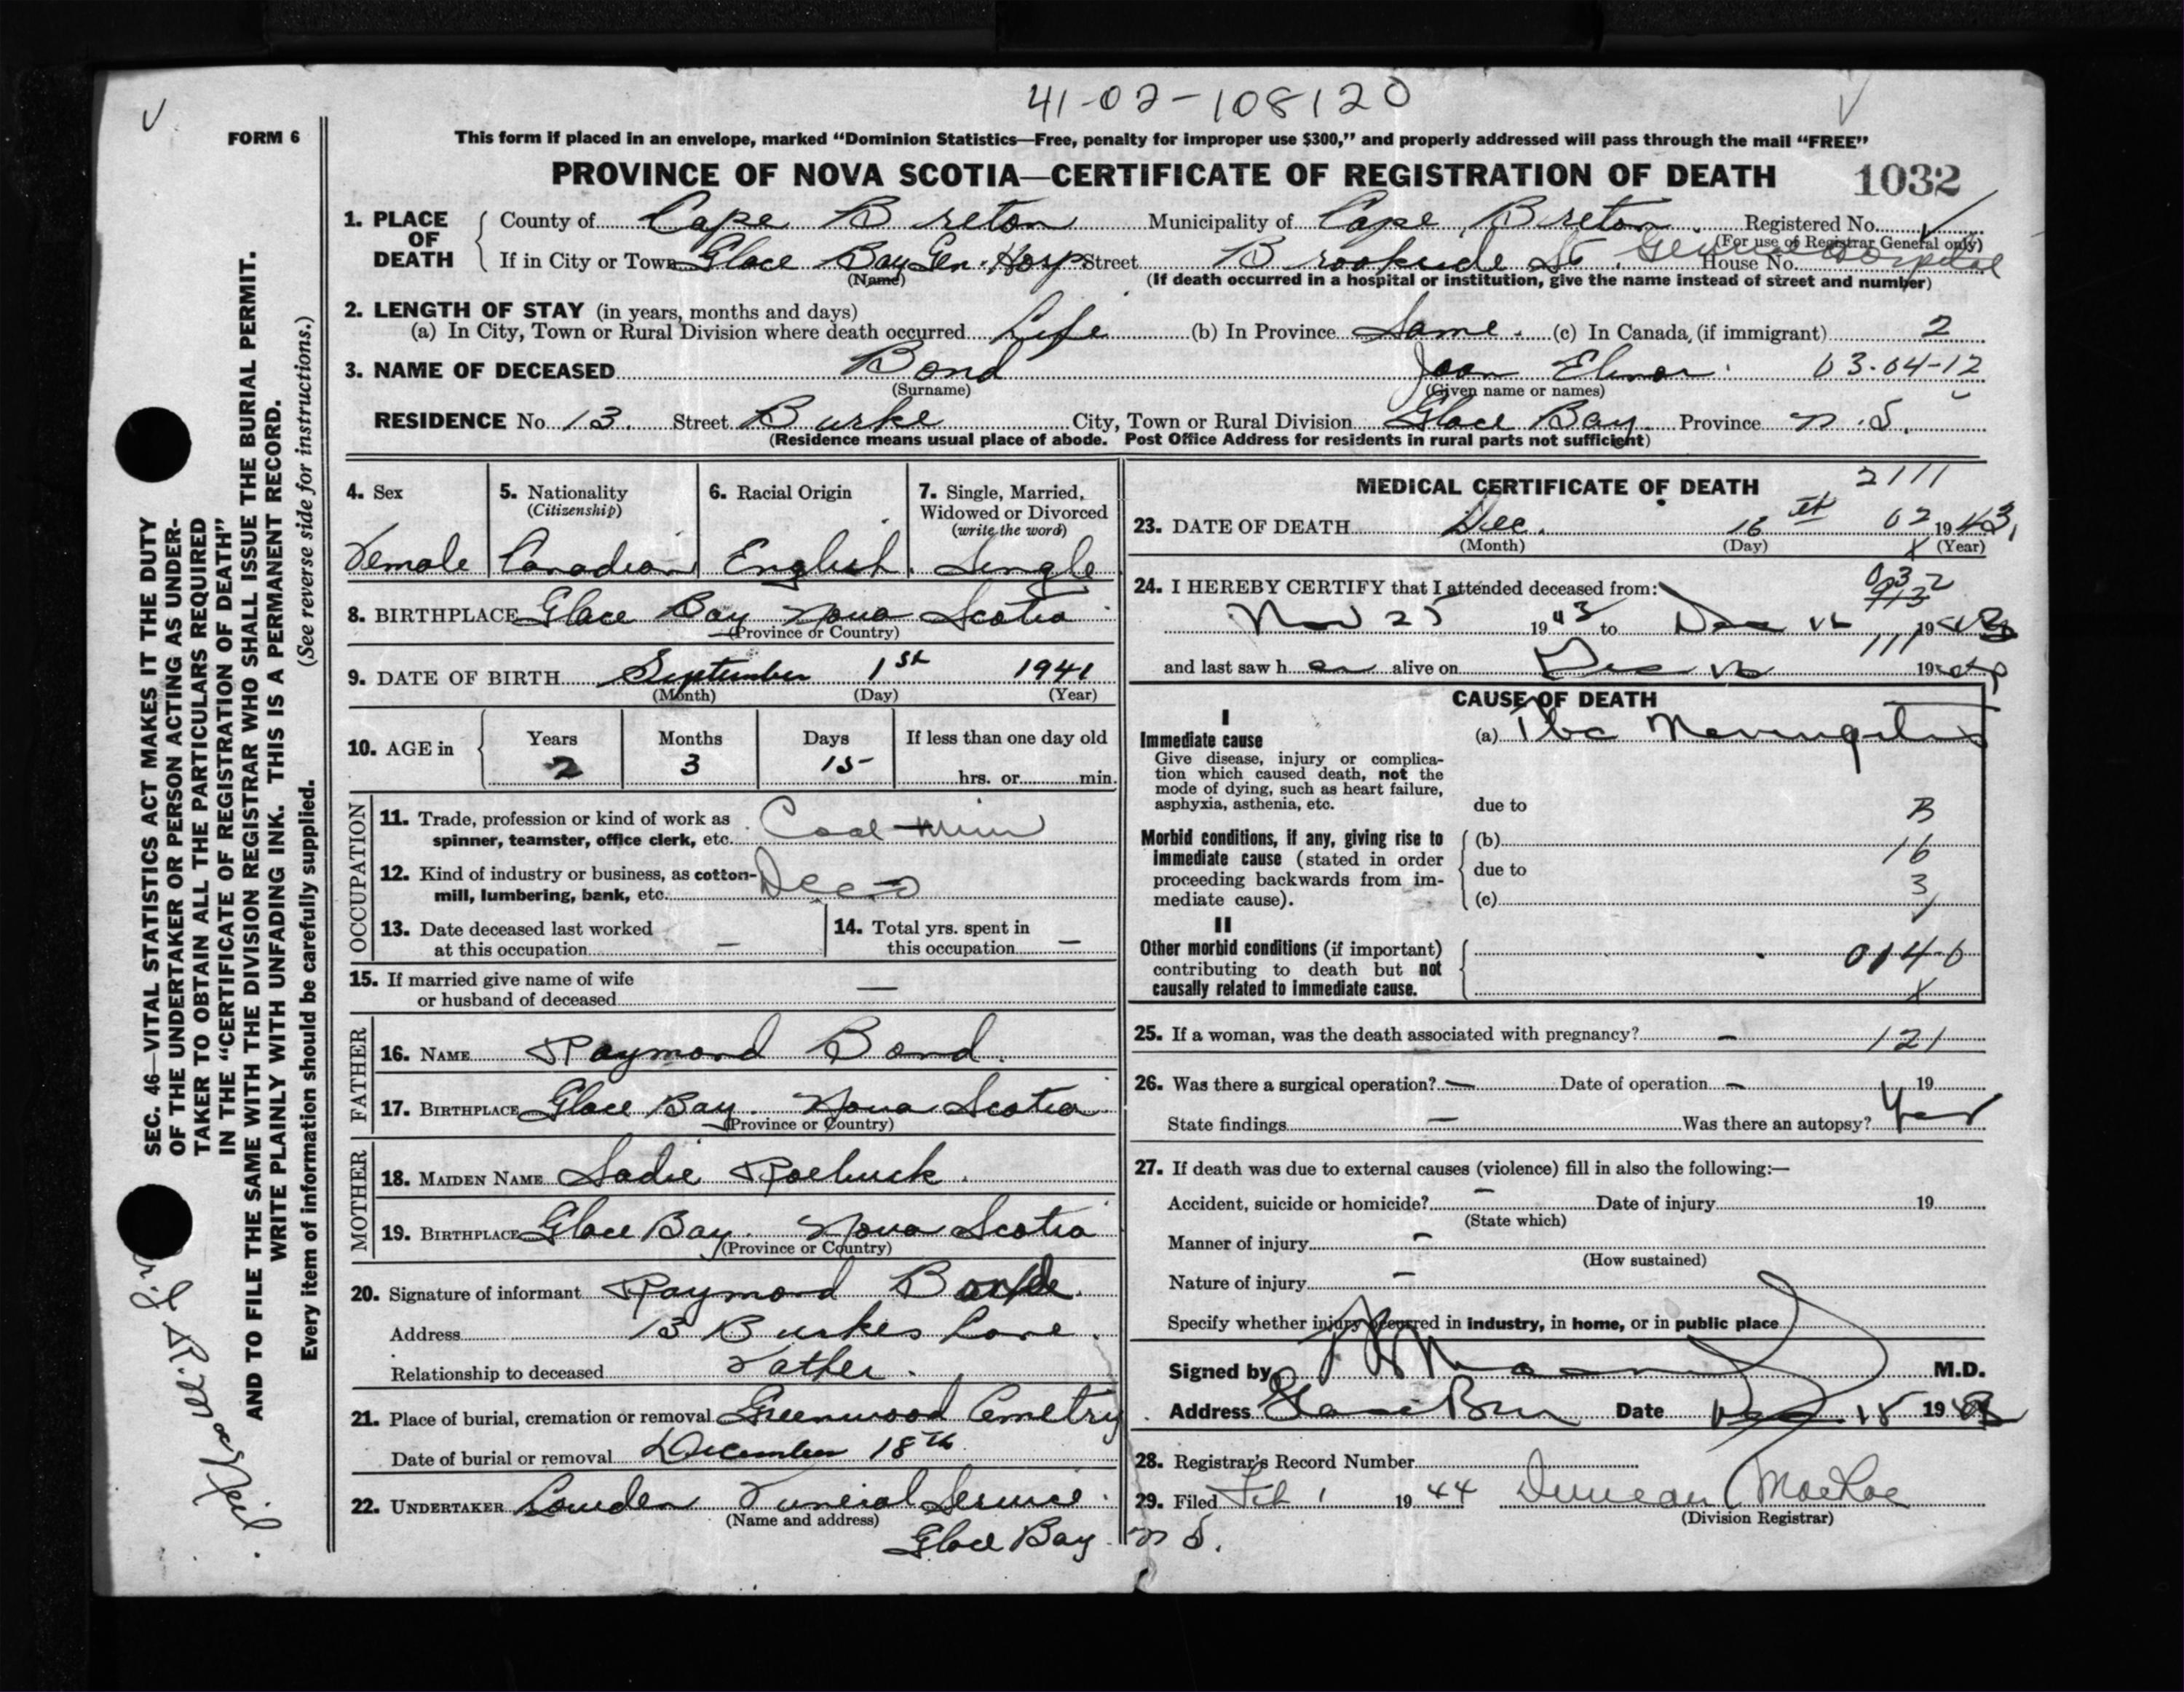 41-02-108120
FORM 6
This form if placed in an envelope, marked "Dominion Statistics—Free, penalty for improper use $300," and properly addressed will pass through the mail "FREE"
PROVINCE OF NOVA SCOTIA—CERTIFICATE OF REGISTRATION OF DEATH 1032
1. PLACE OF DEATH
County of Cape Breton Municipality of Cape Breton Registered No.
(For use of Registrar General only)
If in City or Town Glace Bay Gen. Hosp Street Brookside St. General Hospital House No.
(Name) (If death occurred in a hospital or institution, give the name instead of street and number)
2. LENGTH OF STAY (in years, months and days)
(a) In City, Town or Rural Division where death occurred Life (b) In Province Same. (c) In Canada, (if immigrant) 2
3. NAME OF DECEASED Bond Joan Elinor 03.04-12
(Surname) (Given name or names)
RESIDENCE No 13. Street Burke City, Town or Rural Division Glace Bay. Province N.S.
(Residence means usual place of abode. Post Office Address for residents in rural parts not sufficient)
4. Sex
Female
5. Nationality
(Citizenship)
Canadian
6. Racial Origin
English.
7. Single, Married,
Widowed or Divorced
(write the word)
Single
8. BIRTHPLACE Glace Bay Nova Scotia
(Province or Country)
9. DATE OF BIRTH September 1st 1941
(Month) (Day) (Year)
10. AGE in
Years Months Days If less than one day old
2 3 15 hrs. or min.
OCCUPATION
11. Trade, profession or kind of work as
spinner, teamster, office clerk, etc. Coal
12. Kind of industry or business, as cotton-
mill, lumbering, bank, etc.
13. Date deceased last worked
at this occupation –
14. Total yrs. spent in
this occupation –
15. If married give name of wife
or husband of deceased –
FATHER
16. NAME Raymond Bond.
17. BIRTHPLACE Glace Bay. Nova Scotia
(Province or Country)
MOTHER
18. MAIDEN NAME Sadie Roebuck.
19. BIRTHPLACE Glace Bay. Nova Scotia
(Province or Country)
20. Signature of informant Raymond
Address 13 Burkes Lane.
Relationship to deceased Father.
21. Place of burial, cremation or removal Greenwood Cemetry
Date of burial or removal December 18th
22. UNDERTAKER Funeral Service.
(Name and address)
Glace Bay N S.
2111
MEDICAL CERTIFICATE OF DEATH
23. DATE OF DEATH Dec. 16th 02 1943.
(Month) (Day) (Year)
24. I HEREBY CERTIFY that I attended deceased from:
Nov 25 1943 to Dec 16 19
111
and last saw her alive on Dec 16 19
CAUSE OF DEATH
I
Immediate cause
Give disease, injury or complica-
tion which caused death, not the
mode of dying, such as heart failure,
asphyxia, asthenia, etc.
(a) Tbc Meningitis
due to
B
Morbid conditions, if any, giving rise to
immediate cause (stated in order
proceeding backwards from im-
mediate cause).
(b) 16
due to
3
(c)
II
Other morbid conditions (if important)
contributing to death but not
causally related to immediate cause.
014-0
25. If a woman, was the death associated with pregnancy? – 121
26. Was there a surgical operation? – Date of operation – 19
State findings – Was there an autopsy? Yes
27. If death was due to external causes (violence) fill in also the following:—
Accident, suicide or homicide? – Date of injury 19
(State which)
Manner of injury –
(How sustained)
Nature of injury –
Specify whether injury occurred in industry, in home, or in public place
Signed by M.D.
Address Glace Bay Date Dec 18 19
28. Registrar's Record Number
29. Filed Feb 1 1944 Duncan MacRae
(Division Registrar)
SEC. 46—VITAL STATISTICS ACT MAKES IT THE DUTY
OF THE UNDERTAKER OR PERSON ACTING AS UNDER-
TAKER TO OBTAIN ALL THE PARTICULARS REQUIRED
IN THE "CERTIFICATE OF REGISTRATION OF DEATH"
AND TO FILE THE SAME WITH THE DIVISION REGISTRAR WHO SHALL ISSUE THE BURIAL PERMIT.
WRITE PLAINLY WITH UNFADING INK. THIS IS A PERMANENT RECORD.
Every item of information should be carefully supplied. (See reverse side for instructions.)